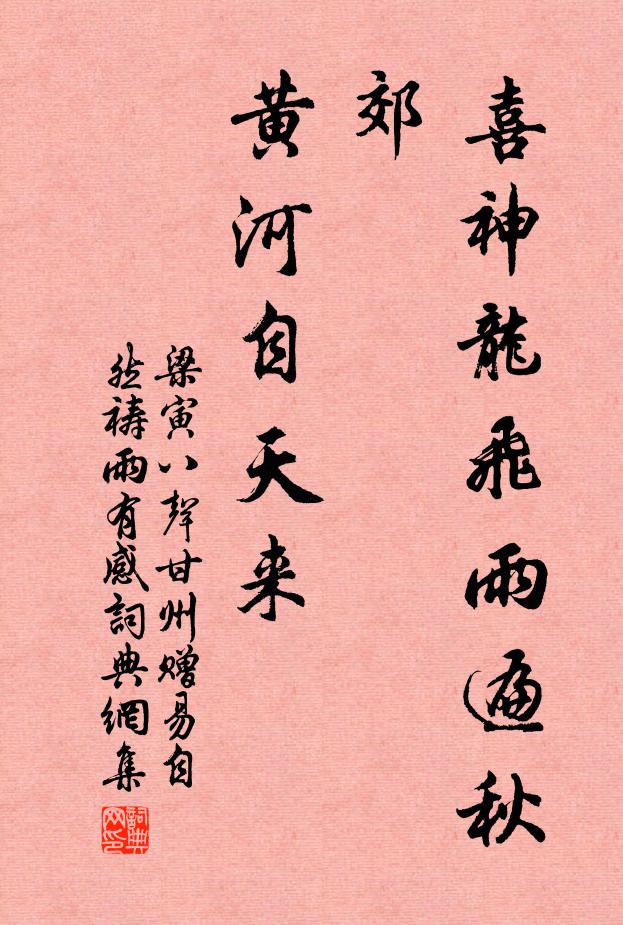 喜神龍飛雨遍秋
郊
黄河自天来
梁寅八聲甘州贈易自
然禱雨有感詞典網集
詞典
网印